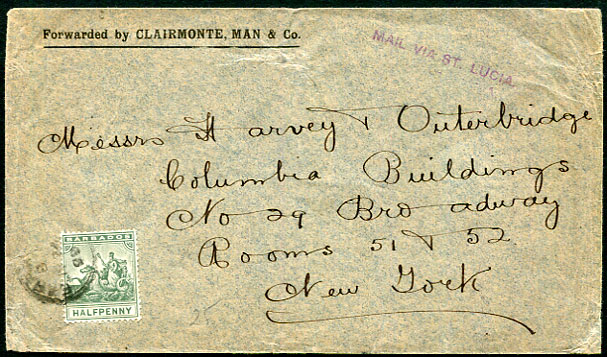 Forwarded by CLAIRMONTE, MAN & Co.
MAIL VIA ST. LUCIA
Messrs Harvey & Outerbridge
Columbia Buildings
No 29 Broadway
Rooms 51 & 52
New York
BARBADOS
HALFPENNY
25